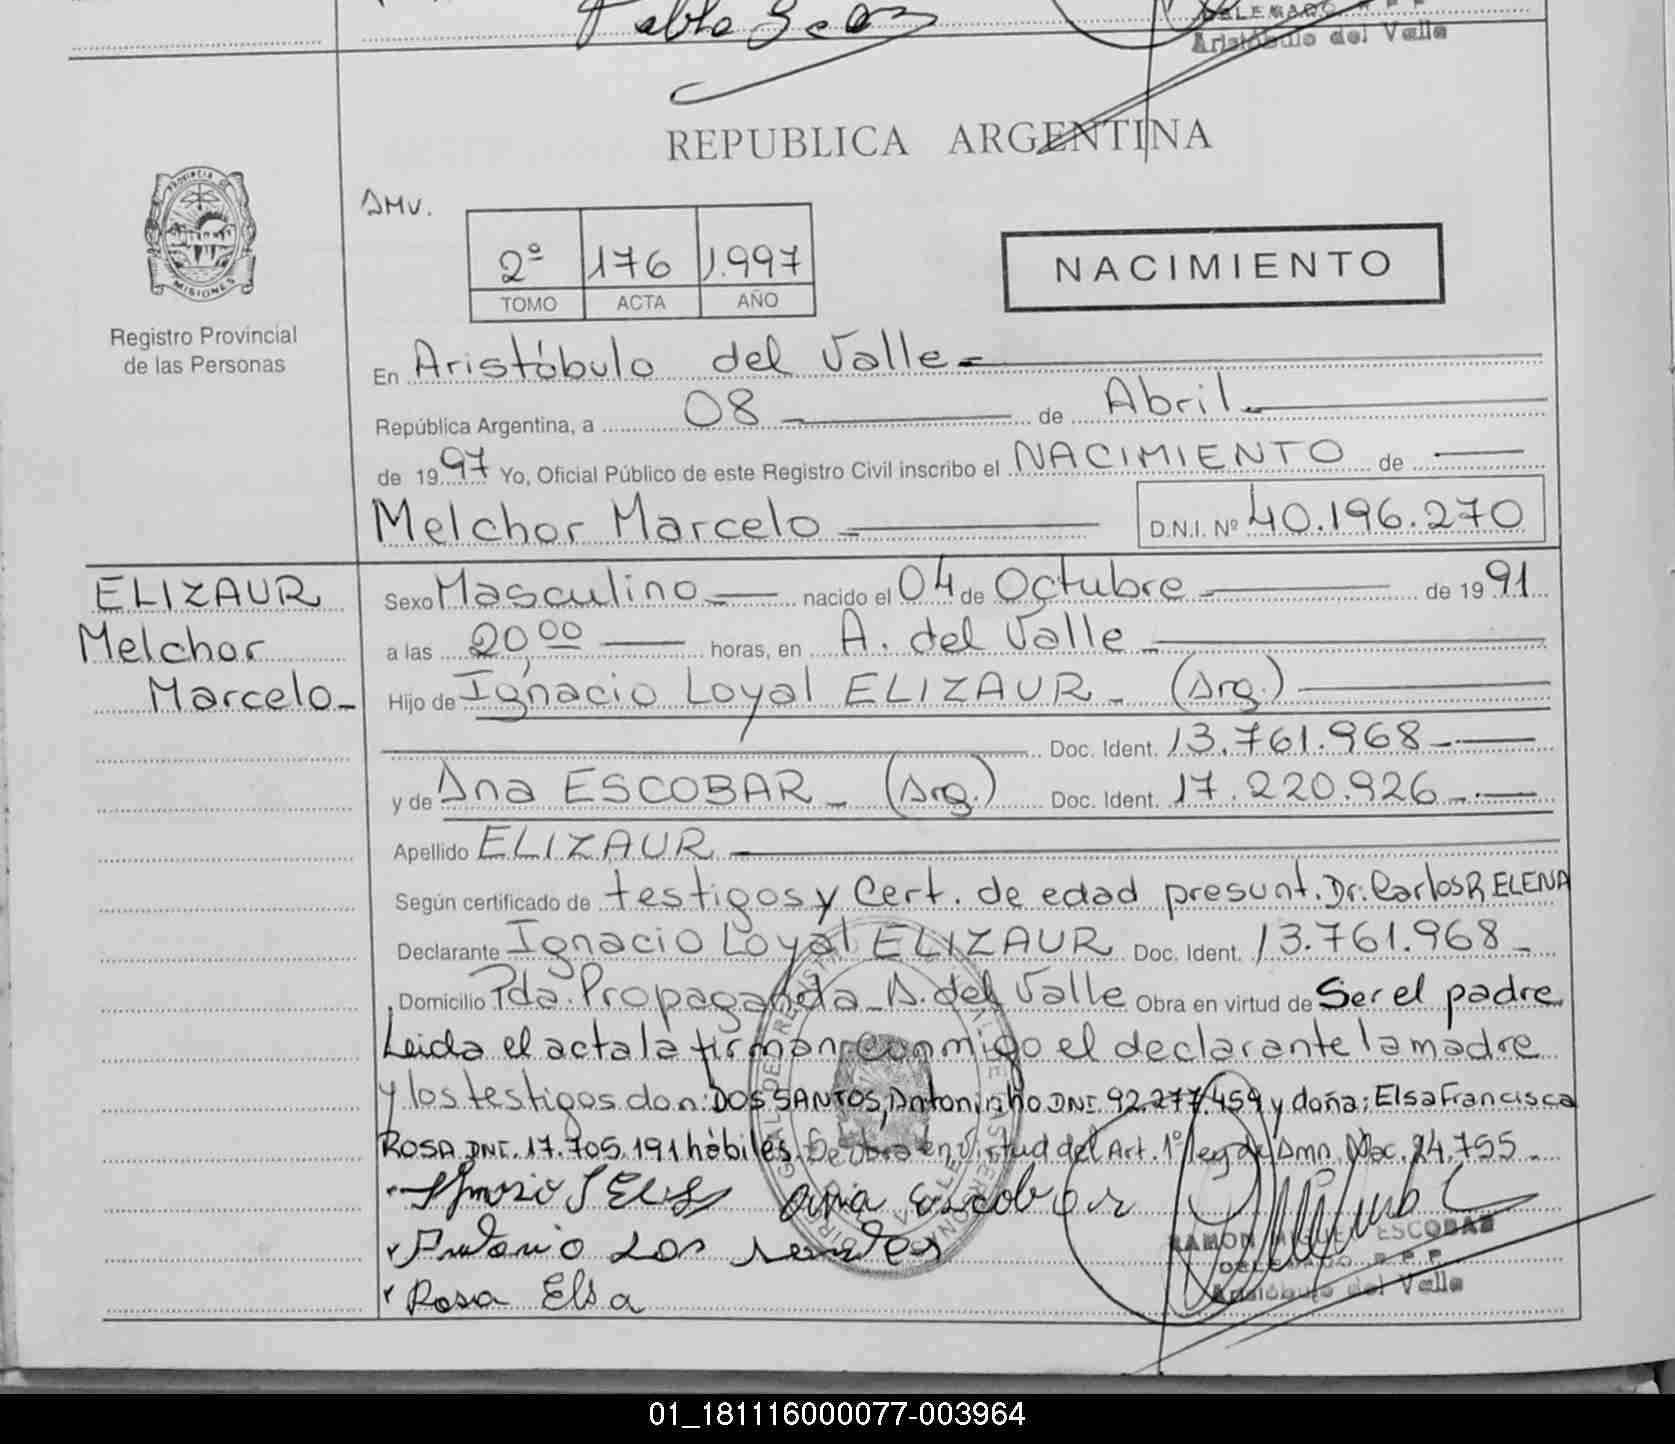 REPUBLICA ARGENTINA
DELEGADO R P P
Aristóbulo del Valle
PROVINCIA DE
MISIONES
Registro Provincial
de las Personas
AMV.
2º 176 1.997
TOMO ACTA AÑO
NACIMIENTO
En Aristóbulo del Valle
República Argentina, a 08 de Abril
de 1997 Yo, Oficial Público de este Registro Civil inscribo el NACIMIENTO de
Melchor Marcelo D.N.I. Nº 40.196.270
ELIZAUR
Melchor
Marcelo
Sexo Masculino nacido el 04 de Octubre de 1991
a las 20,00 horas, en A. del Valle
Hijo de Ignacio Loyal ELIZAUR (Arg.)
Doc. Ident. 13.761.968
y de Ana ESCOBAR (Arg.) Doc. Ident. 17.220.926
Apellido ELIZAUR
Según certificado de testigos y Cert. de edad presunt. Dr. Carlos R. ELENA
Declarante Ignacio Loyal ELIZAUR Doc. Ident. 13.761.968
Domicilio Pda. Propaganda A. del Valle Obra en virtud de Ser el padre
Leida el acta la firman conmigo el declarante la madre
y los testigos don: DOS SANTOS, Antoninho DNI 92.277.459 y doña: Elsa Francisca
ROSA DNI. 17.705.191 hábiles. Se obra en virtud del Art. 1º ley de Amn. Nac. 24.755
Ana Escobar
Antonio dos santos
Rosa Elsa
RAMON MIGUEL ESCOBAR
DELEGADO R P P
Aristóbulo del Valle
01_181116000077-003964